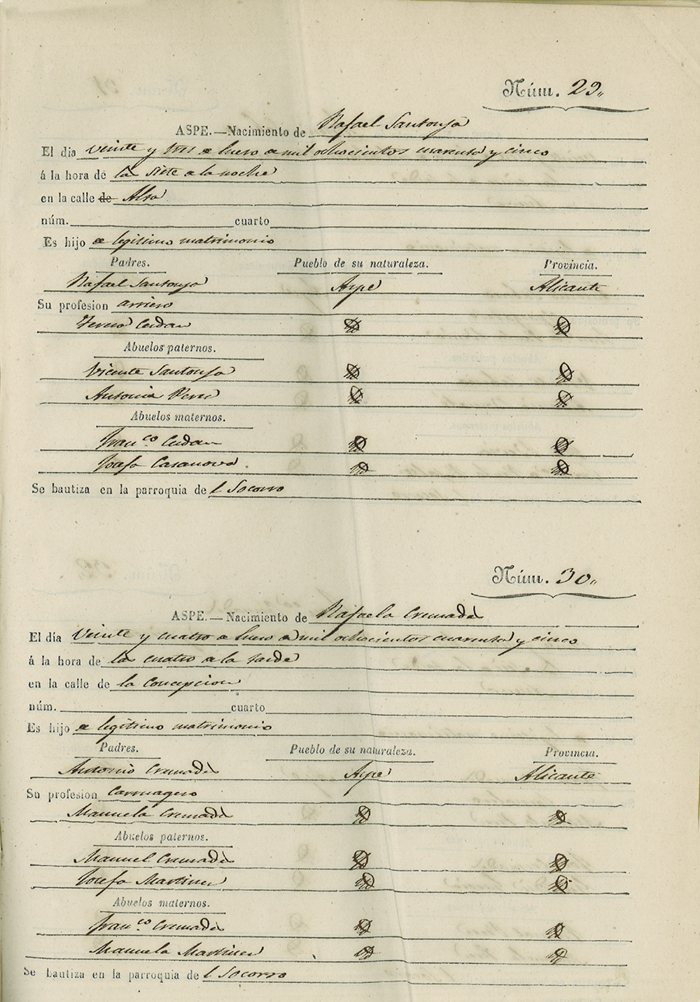 Núm. 29„
ASPE.—Nacimiento de Rafael Santonja
El dia veinte y tres de Enero de mil ochocientos cuarenta y cinco
á la hora de la siete de la noche
en la calle de Alta
núm. cuarto
Es hijo de legitimo matrimonio
Padres. Pueblo de su naturaleza. Provincia.
Rafael Santonja Aspe Alicante
Su profesion arriero
Teresa Cerdan
Abuelos paternos.
Vicente Santonja
Antonia
Abuelos maternos.
Fran.co Cerdan
Josefa Casanova
Se bautiza en la parroquia de l Socorro
Núm. 30„
ASPE.—Nacimiento de Rafaela Cremades
El dia veinte y cuatro de Enero de mil ochocientos cuarenta y cinco
á la hora de la cuatro de la tarde
en la calle de la Concepcion
núm. cuarto
Es hijo de legitimo matrimonio
Padres. Pueblo de su naturaleza. Provincia.
Antonio Cremades Aspe Alicante
Su profesion
Manuela Cremades
Abuelos paternos.
Manuel Cremades
Josefa Martinez
Abuelos maternos.
Fran.co Cremades
Manuela Martinez
Se bautiza en la parroquia de l Socorro